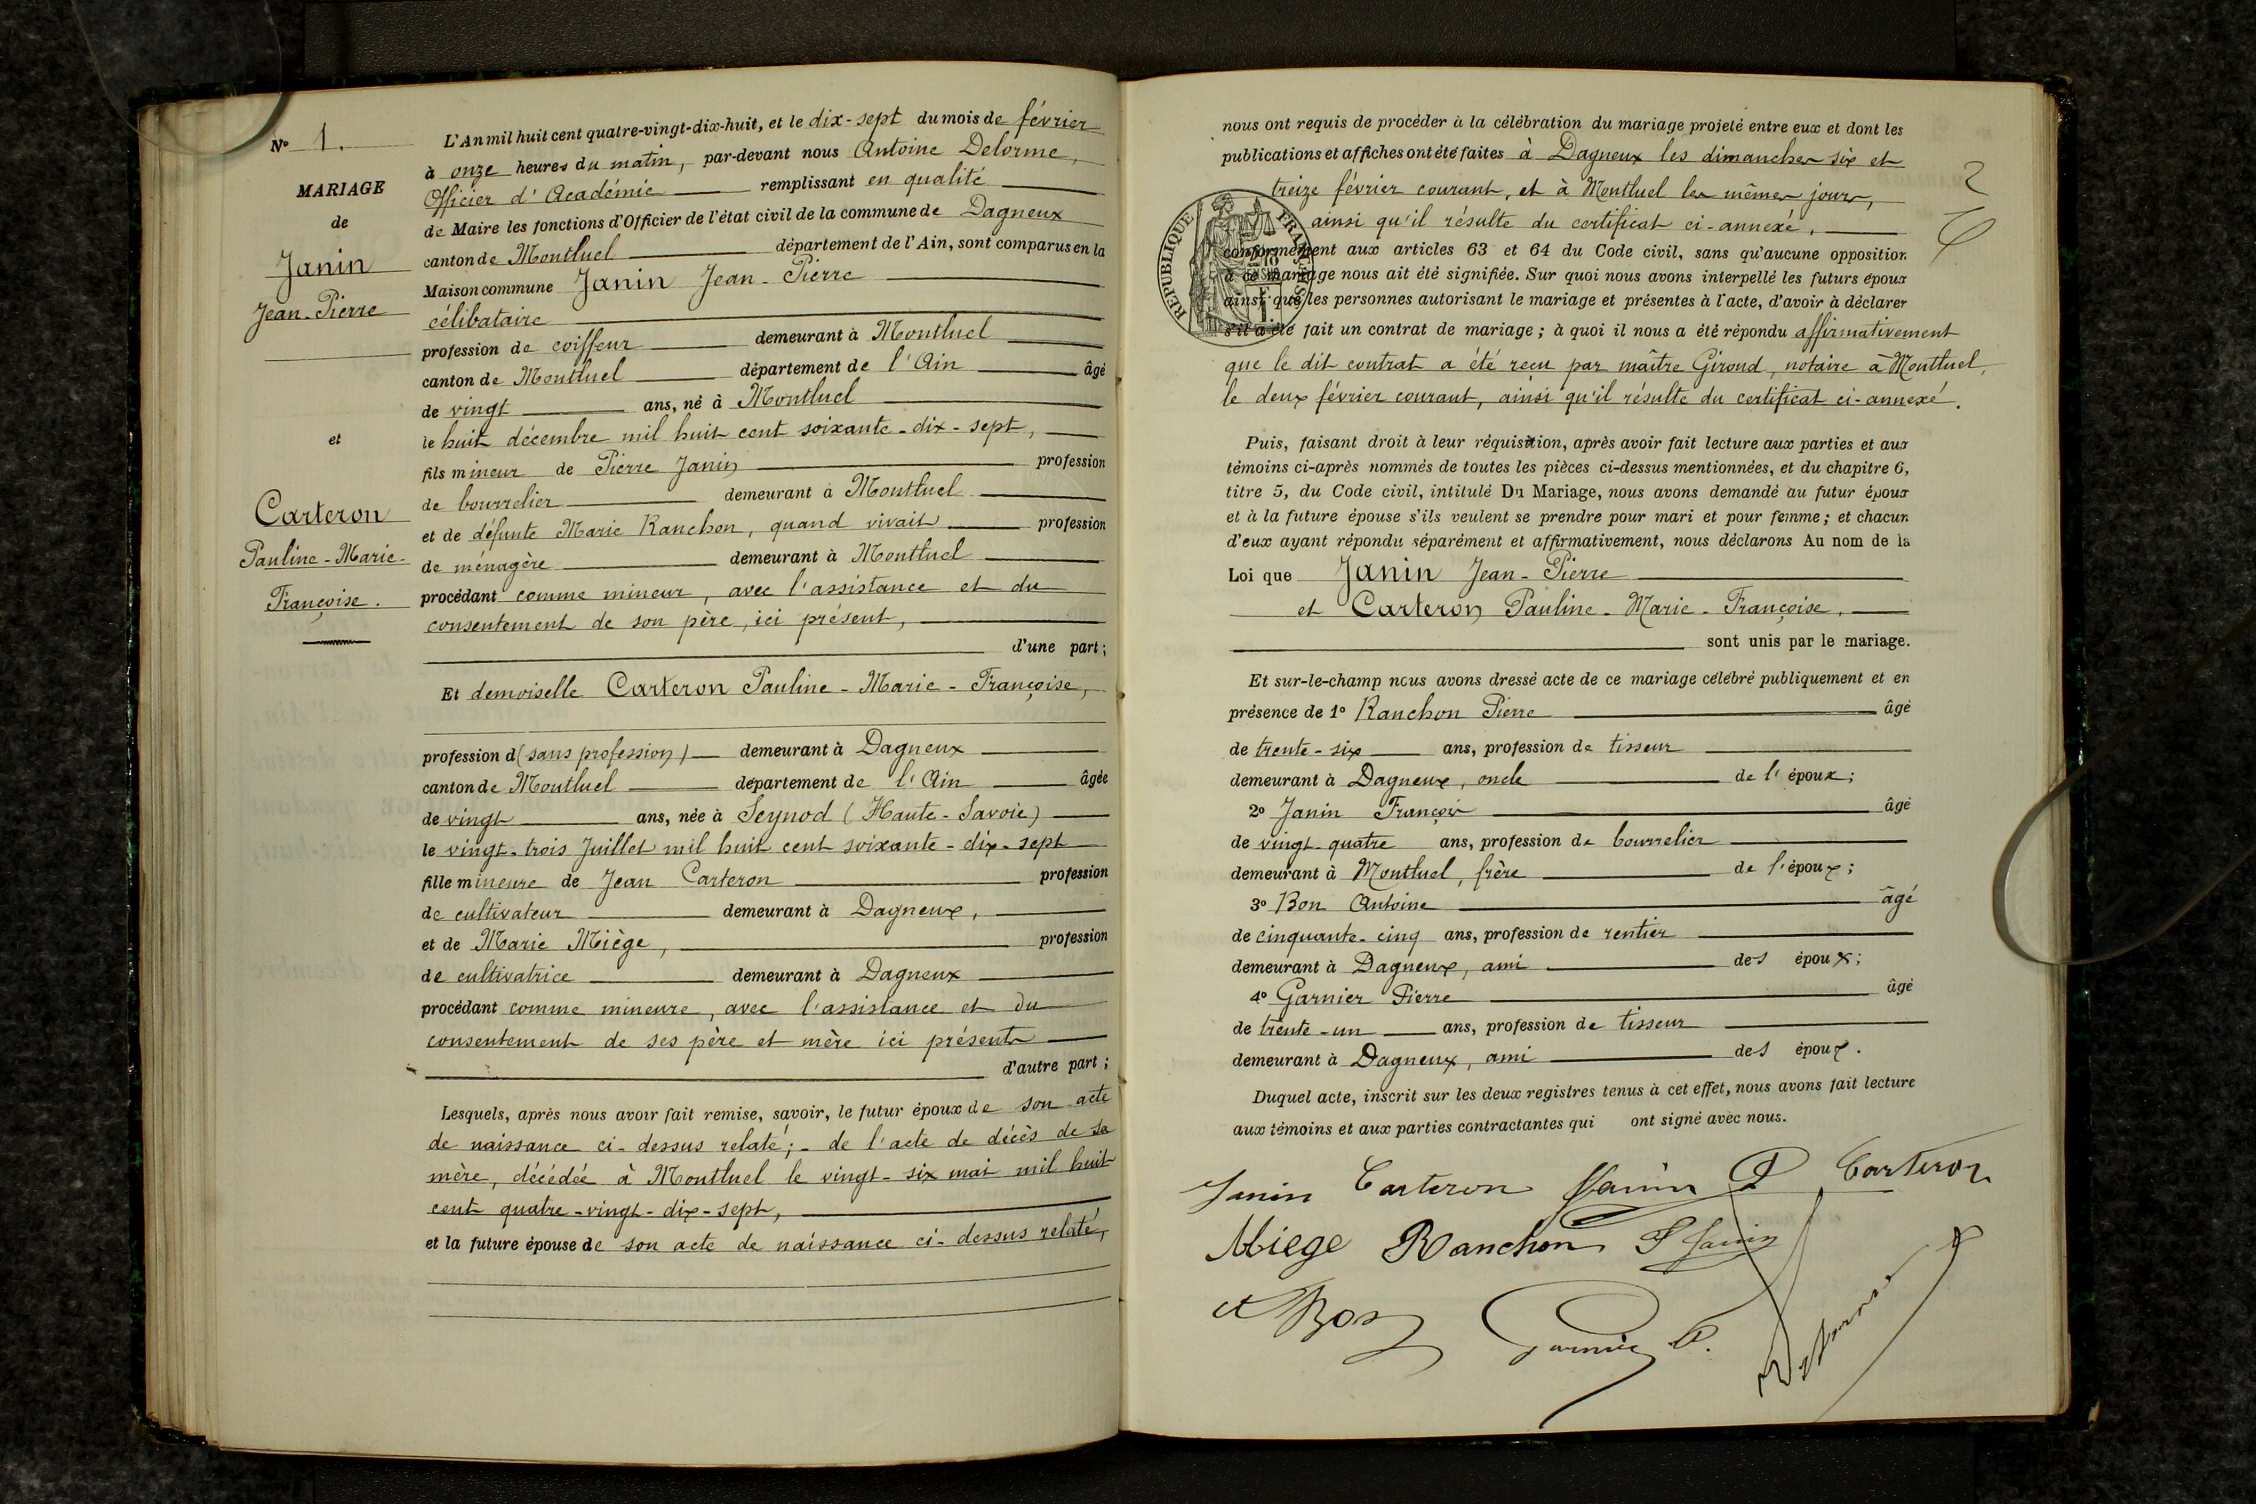 N° 1.
MARIAGE
de
Janin
Jean-Pierre
et
Carteron
Pauline-Marie-
Françoise.
L'An mil huit cent quatre-vingt-dix-huit, et le dix-sept du mois de février
à onze heures du matin, par-devant nous Antoine Delorme,
Officier d'Académie remplissant en qualité
de Maire les fonctions d'Officier de l'état civil de la commune de Dagneux
canton de Montluel département de l'Ain, sont comparus en la
Maison commune Janin Jean-Pierre
célibataire
profession de coiffeur demeurant à Montluel
canton de Montluel département de l'Ain âgé
de vingt ans, né à Montluel
le huit décembre mil huit cent soixante-dix-sept,
fils mineur de Pierre Janin profession
de bourrelier demeurant à Montluel
et de défunte Marie Ranchon, quand vivait profession
de ménagère demeurant à Montluel
procédant comme mineur, avec l'assistance et du
consentement de son père, ici présent,
d'une part;
Et demoiselle Carteron Pauline-Marie-Françoise,
profession d (sans profession) demeurant à Dagneux
canton de Montluel département de l'Ain âgée
de vingt ans, née à Seynod (Haute-Savoie)
le vingt-trois Juillet mil huit cent soixante-dix-sept
fille mineure de Jean Carteron profession
de cultivateur demeurant à Dagneux,
et de Marie Miège, profession
de cultivatrice demeurant à Dagneux
procédant comme mineure, avec l'assistance et du
consentement de ses père et mère ici présents
d'autre part;
Lesquels, après nous avoir fait remise, savoir, le futur époux de son acte
de naissance ci-dessus relaté;- de l'acte de décès de sa
mère, décédée à Montluel le vingt-six mai mil huit
cent quatre-vingt-dix-sept,
et la future épouse de son acte de naissance ci-dessus relaté,
nous ont requis de procéder à la célébration du mariage projeté entre eux et dont les
publications et affiches ont été faites à Dagneux les dimanches six et
treize février courant, et à Montluel les mêmes jours,
ainsi qu'il résulte du certificat ci-annexé,
RÉPUBLIQUE FRANÇAISE
conformément aux articles 63 et 64 du Code civil, sans qu'aucune opposition
à ce mariage nous ait été signifiée. Sur quoi nous avons interpellé les futurs époux
ainsi que les personnes autorisant le mariage et présentes à l'acte, d'avoir à déclarer
s'il a été fait un contrat de mariage; à quoi il nous a été répondu affirmativement
que le dit contrat a été reçu par maître Girond, notaire à Montluel,
le deux février courant, ainsi qu'il résulte du certificat ci-annexé.
Puis, faisant droit à leur réquisition, après avoir fait lecture aux parties et aux
témoins ci-après nommés de toutes les pièces ci-dessus mentionnées, et du chapitre 6,
titre 5, du Code civil, intitulé Du Mariage, nous avons demandé au futur époux
et à la future épouse s'ils veulent se prendre pour mari et pour femme; et chacun
d'eux ayant répondu séparément et affirmativement, nous déclarons Au nom de la
Loi que Janin Jean-Pierre
et Carteron Pauline-Marie-Françoise,
sont unis par le mariage.
Et sur-le-champ nous avons dressé acte de ce mariage célébré publiquement et en
présence de 1° Ranchon Pierre âgé
de trente-six ans, profession de tisseur
demeurant à Dagneux, oncle de l'époux;
2° Janin François âgé
de vingt-quatre ans, profession de bourrelier
demeurant à Montluel, frère de l'époux;
3° Bon Antoine âgé
de cinquante-cinq ans, profession de rentier
demeurant à Dagneux, ami des époux;
4° Garnier Pierre âgé
de trente-un ans, profession de tisseur
demeurant à Dagneux, ami des époux.
Duquel acte, inscrit sur les deux registres tenus à cet effet, nous avons fait lecture
aux témoins et aux parties contractantes qui ont signé avec nous.
Janin Carteron Janin P Carteron
Miege Ranchon F Janin
A Bon Garnier P. Delorme